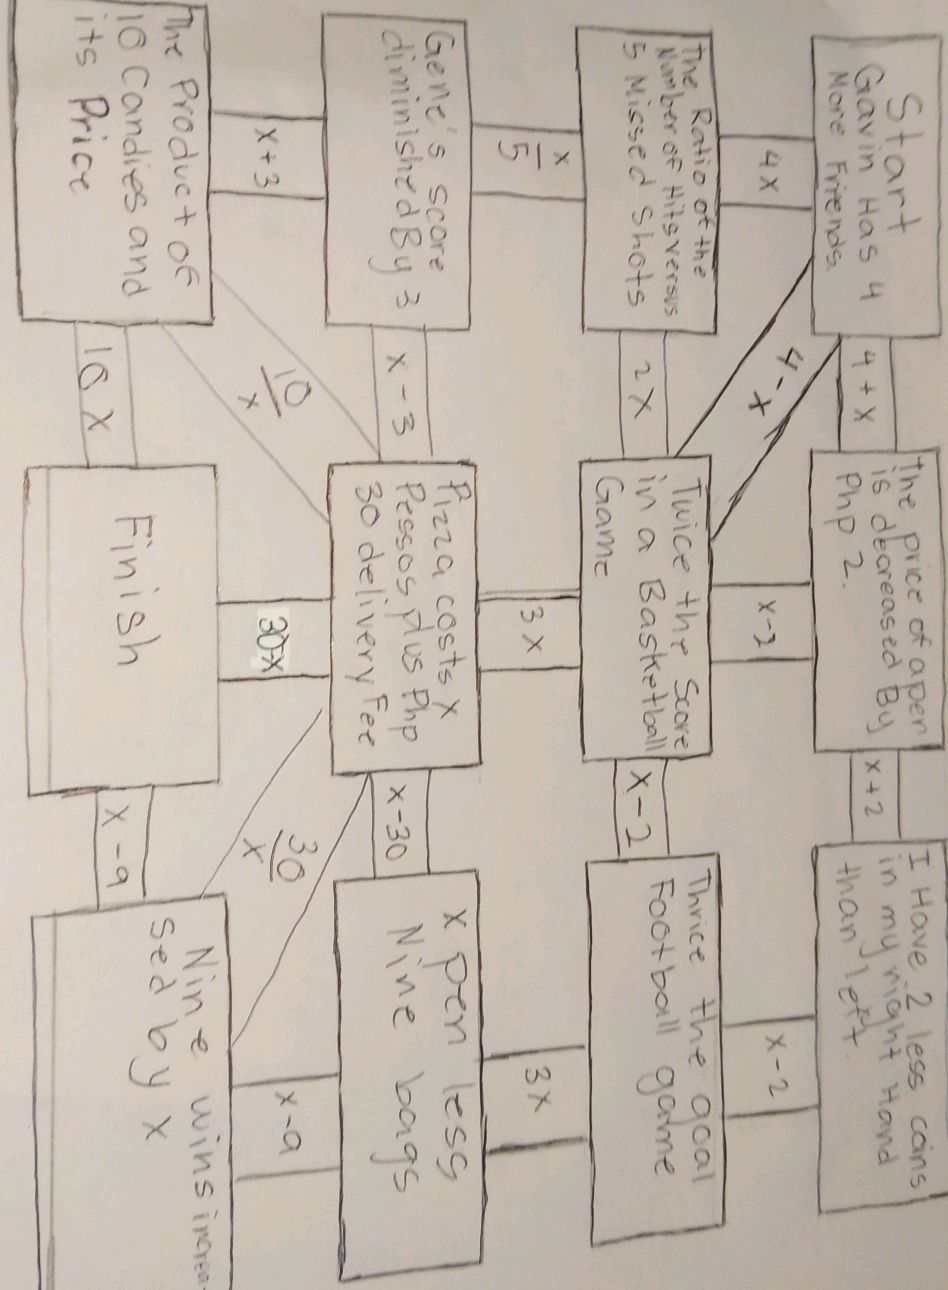 Start
Gavin Has 4
More Friends.
4 + x
The price of a pen
is decreased By
Php 2.
x + 2
I Have 2 less coins
in my right Hand
than left.
4x
4 - x
x-2
x-2
The Ratio of the
Number of Hits versus
5 Missed Shots
2x
Twice the Score
in a Basketball
Game
x-2
Thrice the goal
Football game
x
5
3x
3x
Gene's score
diminished By 3
x - 3
Pizza costs x
Pessos plus Php
30 delivery Fee
x-30
x pen less
Nine bags
x+3
10
x
30-x
30
x
x-9
The Product of
10 Candies and
its Price
10x
Finish
x - 9
Nine wins increa-
sed by x